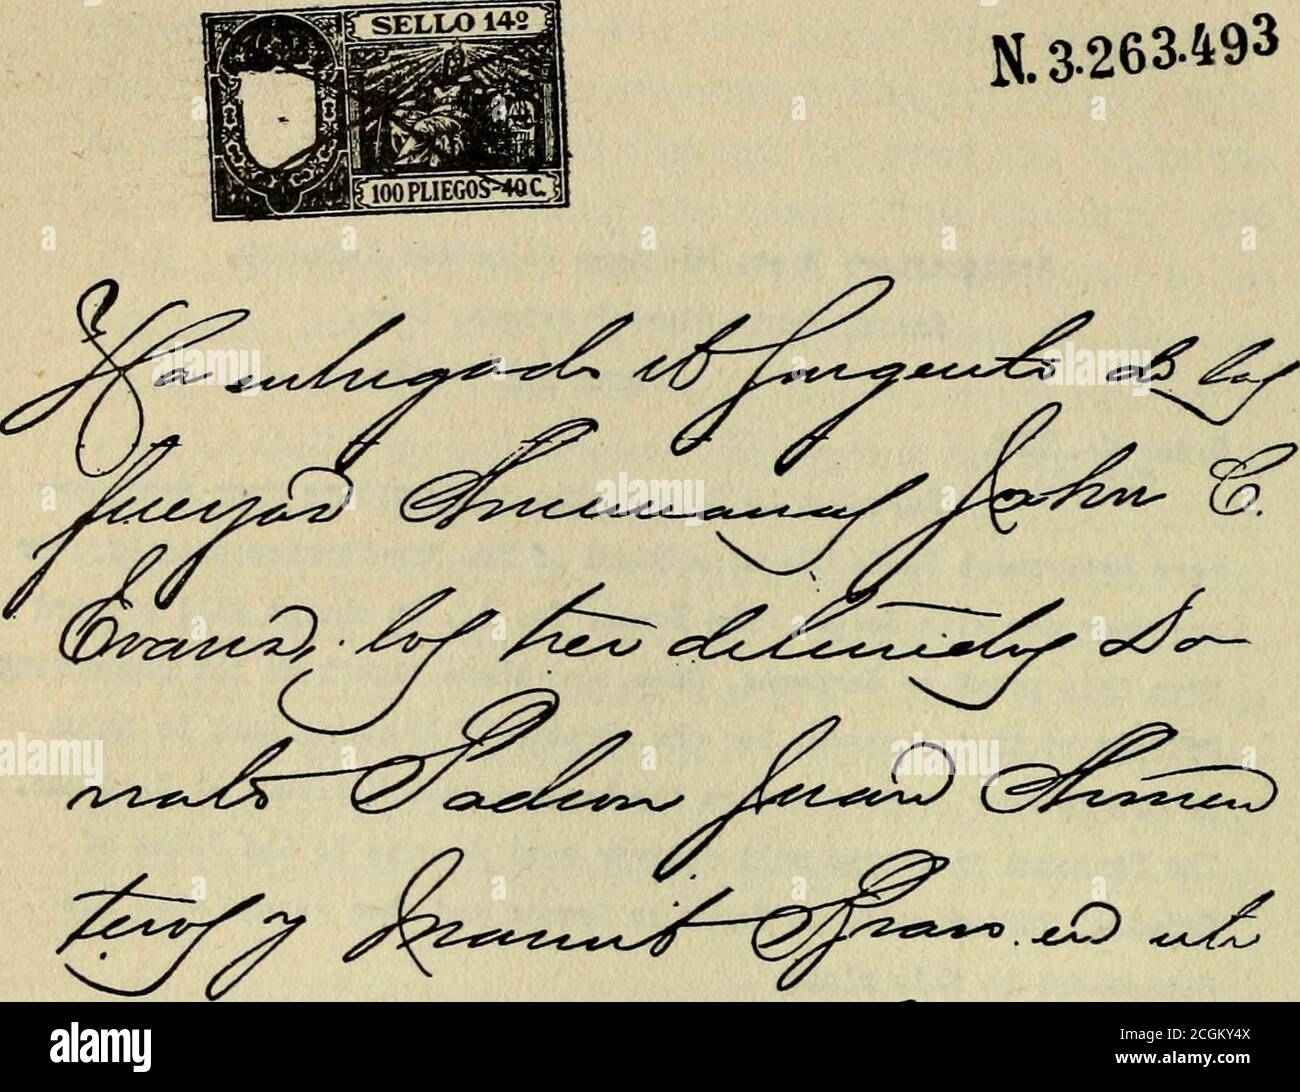 SELLO 14º
N. 3.263.493
100 PLIEGOS-40 C.
Ha entregado el Sargento de las
fuerzas Americanas John C.
Evans, los tres detenidos Do
nato Padron Juan Armen
teros y Manuel Bravo en este
alamy
Image ID: 2CGKY4X
www.alamy.com